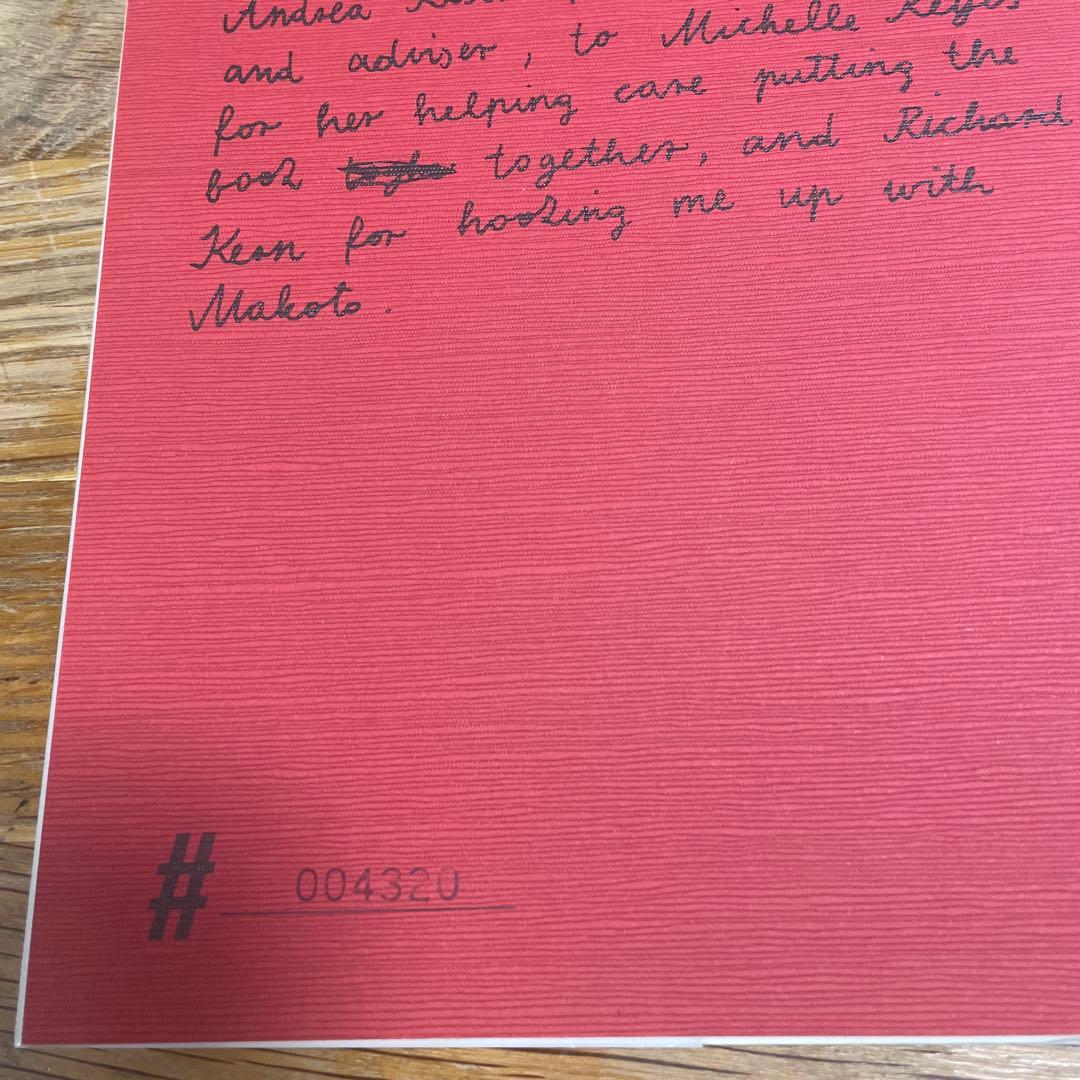 Andrea
and adviser, to Michelle Keyes
for her helping care putting the
book together, and Richard
Kern for hooking me up with
Makoto.
# 004320